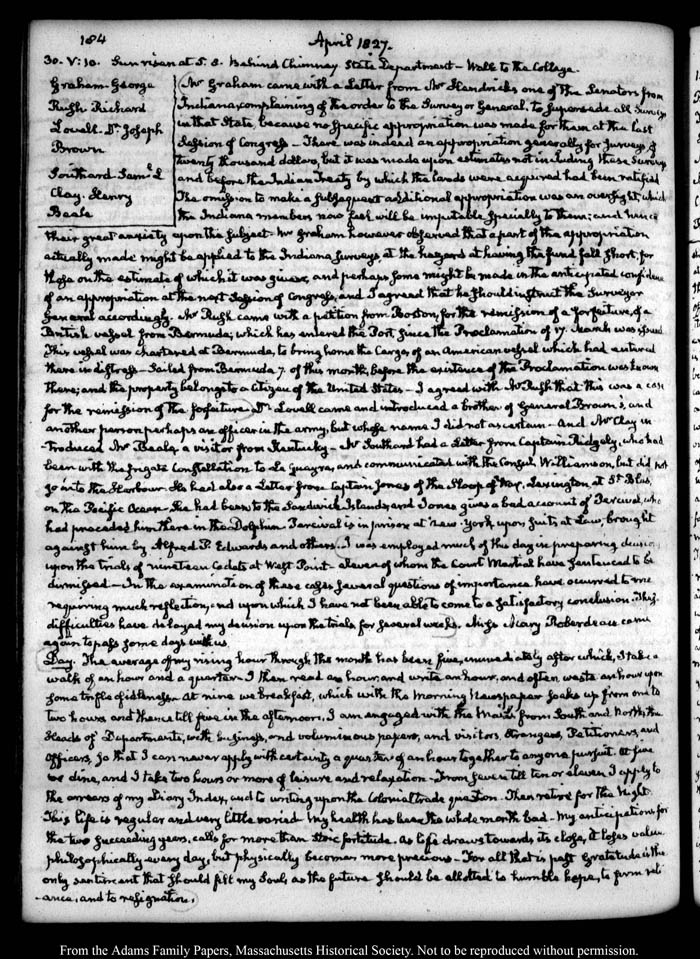 184
April 1827.
30. V:10. Sun risen at 5. 8. Behind Chimney State Department – Walk to the College.
Graham George
Rush Richard
Lovell. Dr. Joseph
Brown
Southard Saml. L
Clay. Henry
Beale
Mr Graham came with a Letter from Mr Hendricks one of the Senators from
Indiana, complaining of the order to the Surveyor General. to supersede all Surveys
in that State, because no specific appropriation was made for them at the last
Session of Congress – There was indeed an appropriation generally for Surveys, of
twenty thousand dollars, but it was made upon estimates not including these Surveys
and before the Indian Treaty by which the lands were acquired had been ratified
The omission to make a subsequent additional appropriation was an oversight, which
the Indiana members now feel will be imputable specially to them; and hence
their great anxiety upon the subject – Mr Graham however observed that a part of the appropriation
actually made might be applied to the Indiana Surveys, at the hazard of having the fund fall short, for
those on the estimate of which it was given, and perhaps some might be made in the anticipated confidence
of an appropriation at the next Session of Congress, and I agreed that he should instruct the Surveyor
General accordingly. Mr Rush came with a petition from Boston, for the remission of a forfeiture, of a
British vessel from Bermuda, which has entered the Port since the Proclamation of 17. March was issued
This vessel was chartered at Bermuda, to bring home the Cargo, of an American vessel which had entered
there in distress – Sailed from Bermuda 7. of this month, before the existence of the Proclamation was known
there; and the property belongs to a citizen of the United States – I agreed with Mr Rush that this was a case
for the remission of the forfeiture. Dr Lovell came and introduced a brother of General Brown's, and
another person perhaps an officer in the army, but whose name I did not ascertain – And Mr Clay in
troduced Mr Beale, a visitor from Kentucky – Mr Southard had a Letter from Captain Ridgely, who had
been with the frigate Constellation to La Guayra, and communicated with the Consul Williamson, but did not
go into the Harbour. He had also a Letter from Captain Jones of the Sloop of War, at St Blas,
on the Pacific Ocean – He had been to the Sandwich Islands, and Jones gives a bad account of Percival, who
had preceded him there in the Dolphin. Percival is in prison at New-York, upon suits at Law, brought
against him by Alfred P. Edwards and others. I was employed much of this day in preparing decisions
upon the trials of nineteen Cadets at West Point – eleven of whom the Court Martial have sentenced to be
dismissed – In the examination of these cases several questions of importance have occurred to me
requiring much reflection, and upon which I have not been able to come to a satisfactory conclusion. These
difficulties have delayed my decision upon the trials for several weeks. Miss Mary Roberdeau came
again to pass some days with us
Day. The average of my rising hour through the month has been five, immediately after which, I take a
walk of an hour and a quarter. I then read an hour, and write an hour, and often waste an hour upon
some trifle of idleness – At nine we breakfast, which with the Morning Newspaper soaks up from one to
two hours and thence till five in the afternoon, I am engaged with the Mails from South and North, the
Heads of Departments, with business, and voluminous papers, and visitors, Strangers, Petitioners, and
Officers, so that I can never apply with certainty a quarter of an hour together to any one pursuit. At five
we dine, and I take two hours or more of leisure and relaxation – From seven till ten or eleven I apply to
the arrears of my Diary Index, and to writing upon the Colonial trade question. Then retire for the Night.
This life is regular and very little varied My health has been the whole month bad – My anticipations for
the two succeeding years, calls for more than Stoic fortitude. As life draws towards its close, it loses value
philosophically every day, but physically becomes more precious – For all that is past Gratitude is the
only sentiment that should fill my Soul, as the future should be allotted to humble hope, to firm reli
-ance, and to resignation.
From the Adams Family Papers, Massachusetts Historical Society. Not to be reproduced without permission.